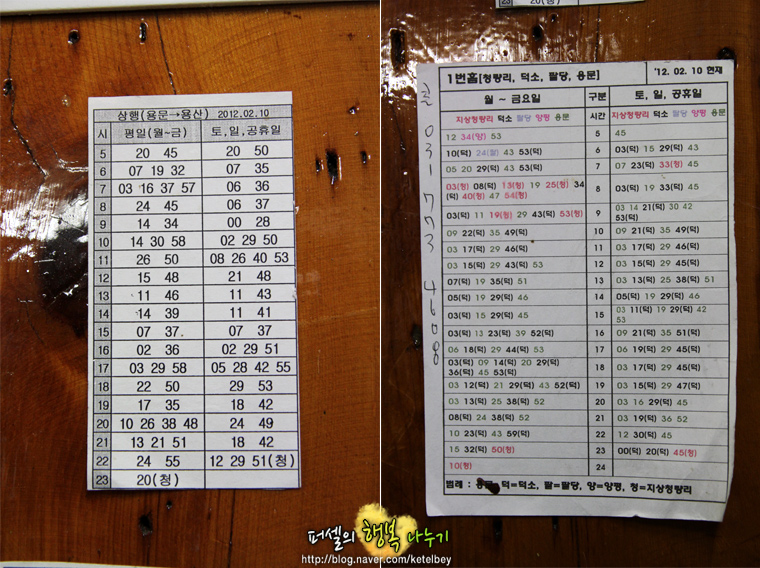 23 20(청)
상행(용문→용산) 2012.02.10
시 평일(월~금) 토,일,공휴일
5 20 45 20 50
6 07 19 32 07 35
7 03 16 37 57 06 36
8 24 45 06 37
9 14 34 00 28
10 14 30 58 02 29 50
11 26 50 08 26 40 53
12 15 48 21 48
13 11 46 11 43
14 14 39 11 41
15 07 37 07 37
16 02 36 02 29 51
17 03 29 58 05 28 42 55
18 22 50 29 53
19 17 35 18 42
20 10 26 38 48 24 49
21 13 21 51 18 42
22 24 55 12 29 51(청)
23 20(청)
1번홈[청량리, 덕소, 팔당, 용문] '12. 02. 10 현재
월 ~ 금요일 구분 토, 일, 공휴일
지상청량리 덕소 팔당 양평 용문 시간 지상청량리 덕소 팔당 양평 용문
12 34(양) 53 5 45
10(덕) 24(팔) 43 53(덕) 6 03(덕) 15 29(덕) 43
05 20 29(덕) 43 53(덕) 7 07 23(덕) 33(청) 45
03(청) 08(덕) 13(청) 19 25(청) 34
(덕) 40(청) 47 54(청) 8 03(덕) 19 33(덕) 45
03(덕) 11 19(청) 29 43(덕) 53(청) 9 03 14 21(덕) 30 42
53(덕)
09 22(덕) 35 49(덕) 10 09 21(덕) 35 49(덕)
03 17(덕) 29 46(덕) 11 03 17(덕) 29 46(덕)
03 15(덕) 29 43(덕) 53 12 03 15(덕) 29 45(덕)
07(덕) 19 35(덕) 51 13 03 13(덕) 25 38(덕) 51
05(덕) 19 29(덕) 46 14 05(덕) 19 29(덕) 46
03(덕) 15(덕) 29 45(덕) 15 03 11(덕) 19 29(덕) 42
53
03(덕) 13 23(덕) 39 52(덕) 16 09 21(덕) 35 51(덕)
06 18(덕) 29 44(덕) 53 17 06 19(덕) 29 45(덕)
03(덕) 09 14(덕) 20 29(덕)
36(덕) 45 53(덕) 18 03 17(덕) 29 45(덕)
03 12(덕) 21 29(덕) 43 52(덕) 19 03 15(덕) 29 47(덕)
03 13(덕) 25 38(덕) 52 20 03 16 29(덕) 45
08(덕) 24 38(덕) 52 21 03 19(덕) 36 52
10 23(덕) 43 59(덕) 22 12 30(덕) 45
15 32(덕) 50(청) 23 00(덕) 20(덕) 45(청)
10(청) 24
범례 : 용문 덕=덕소, 팔=팔당, 양=양평, 청=지상청량리
031 773 4608
퍼셀의 행복 나누기
http://blog.naver.com/ketelbey